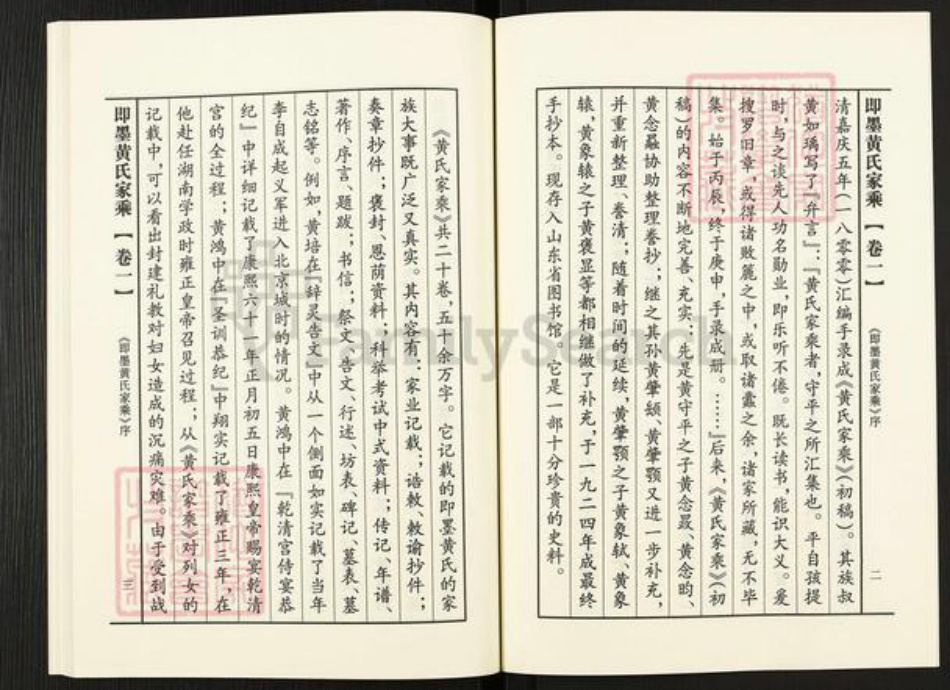 即墨黄氏家乘【卷一】
《即墨黄氏家乘》序
二
清嘉庆五年(一八零零)汇编手录成《黄氏家乘》(初稿)。其族叔
黄如瑀写了『弁言』:『黄氏家乘者,守平之所汇集也。平自孩提
时,与之谈先人功名勋业,即乐听不倦。既长读书,能识大义。爰
搜罗旧章,或得诸败簏之中,或取诸蠹之余,诸家所藏,无不毕
集。始于丙辰,终于庚申,手录成册。……』后来,《黄氏家乘》(初
稿)的内容不断地完善、充实:先是黄守平之子黄念 、黄念昀、
黄念 协助整理誊抄;继之其孙黄肇 、黄肇颚又进一步补充,
并重新整理、誊清;随着时间的延续,黄肇颚之子黄象轼、黄象
辕,黄象辕之子黄褒显等都相继做了补充,于一九二四年成最终
手抄本。现存入山东省图书馆。它是一部十分珍贵的史料。
《黄氏家乘》共二十卷,五十余万字。它记载的即墨黄氏的家
族大事既广泛又真实。其内容有:家业记载;诰敕、敕谕抄件;
奏章抄件;褒封、恩荫资料;科举考试中式资料;传记、年谱、
著作、序言、题跋;书信;祭文、告文、行述、坊表、碑记、墓表、墓
志铭等。例如,黄培在『辞灵告文』中从一个侧面如实记载了当年
李自成起义军进入北京城时的情况。黄鸿中在『乾清宫侍宴恭
纪』中详细记载了康熙六十一年正月初五日康熙皇帝赐宴乾清
宫的全过程;黄鸿中在『圣训恭纪』中翔实记载了雍正三年,在
他赴任湖南学政时雍正皇帝召见过程;从《黄氏家乘》对列女的
记载中,可以看出封建礼教对妇女造成的沉痛灾难。由于受到战
即墨黄氏家乘【卷一】
《即墨黄氏家乘》序
三
FamilySearch